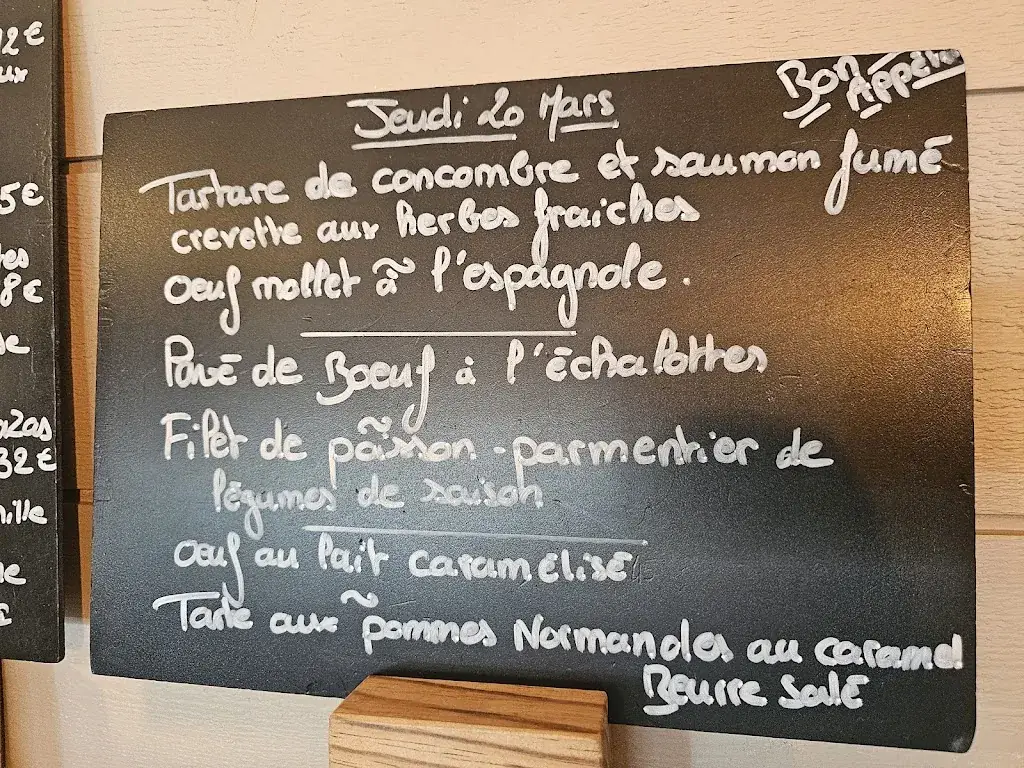 2€
ux
5€
tes
8€
le
32€
Bon
Appétit
Jeudi 20 Mars
Tartare de concombre et saumon fumé
crevette aux herbes fraiches
oeuf mollet à l'espagnole.
Pavé de Boeuf à l'échalottes
Filet de poisson - parmentier de
légumes de saison
oeuf au lait caramélisé
Tarte aux pommes Normandes au caramel
Beurre Salé